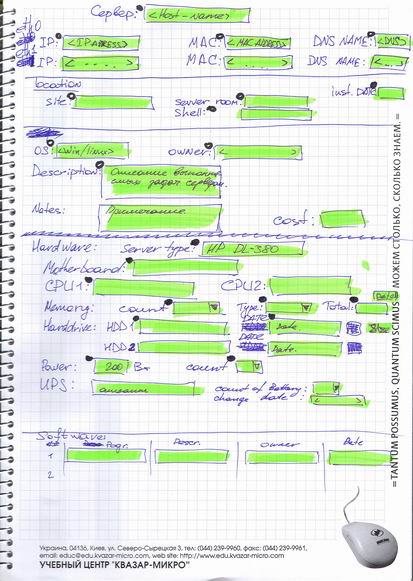 Сервер: <Host-name>
eth0
IP: <IP ADRESS> MAC: <MAC ADRESS> DNS NAME: <DNS>
IP: < . . . . > MAC: < > DNS NAME: < ... >
location
site: server room: inst. DATE
shelf:
OS: <Win/linux> owner: < >
Description: Описание выполняемых задач сервером.
Notes: Примечание cost:
Hardware: Server type: HP DL-380
Motherboard:
CPU1: CPU2:
Memory: count Type: Total:
DATE
Harddrive: HDD1 Date.
DATE
HDD2 Date.
Power: 200 Вт count
UPS: описание count of Battery:
change date: < >
Software:
Progr. Descr. owner Date
1
2
=TANTUM POSSUMUS, QUANTUM SCIMUS = МОЖЕМ СТОЛЬКО, СКОЛЬКО ЗНАЕМ. =
Украина, 04136, Киев, ул. Северо-Сырецкая 3, тел.: (044) 239-9960, факс: (044) 239-9961,
email: educ@edu.kvazar-micro.com, web site: http://www.edu.kvazar-micro.com
УЧЕБНЫЙ ЦЕНТР "КВАЗАР-МИКРО"